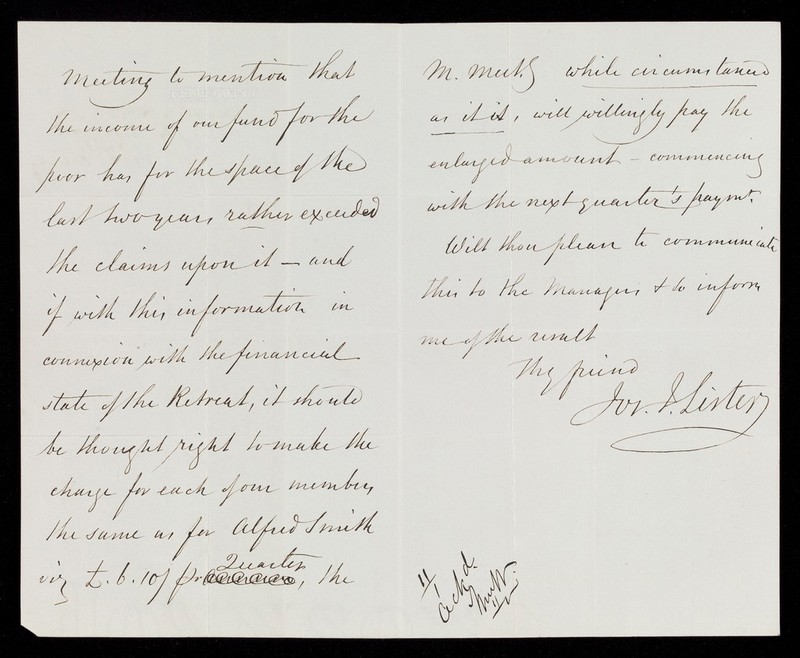 Meeting to mention that
the income of our fund for the
poor has for the space of the
last two years rather exceeded
the claims upon it — and
if with this information in
connexion with the financial
state of the Retreat, it should
be thought right to make the
charge for each of our members
the same as for Alfred Smith
viz £.6.10/ pr Quarter, the
M. Meetg while circumstanced
as it is, will willingly pay the
enlarged amount – commencing
with the next quarter's paymt.
Wilt thou please to communicate
this to the Managers & to inform
me of the result
Thy friend
Jos. J. Lister
11/1
ackd.